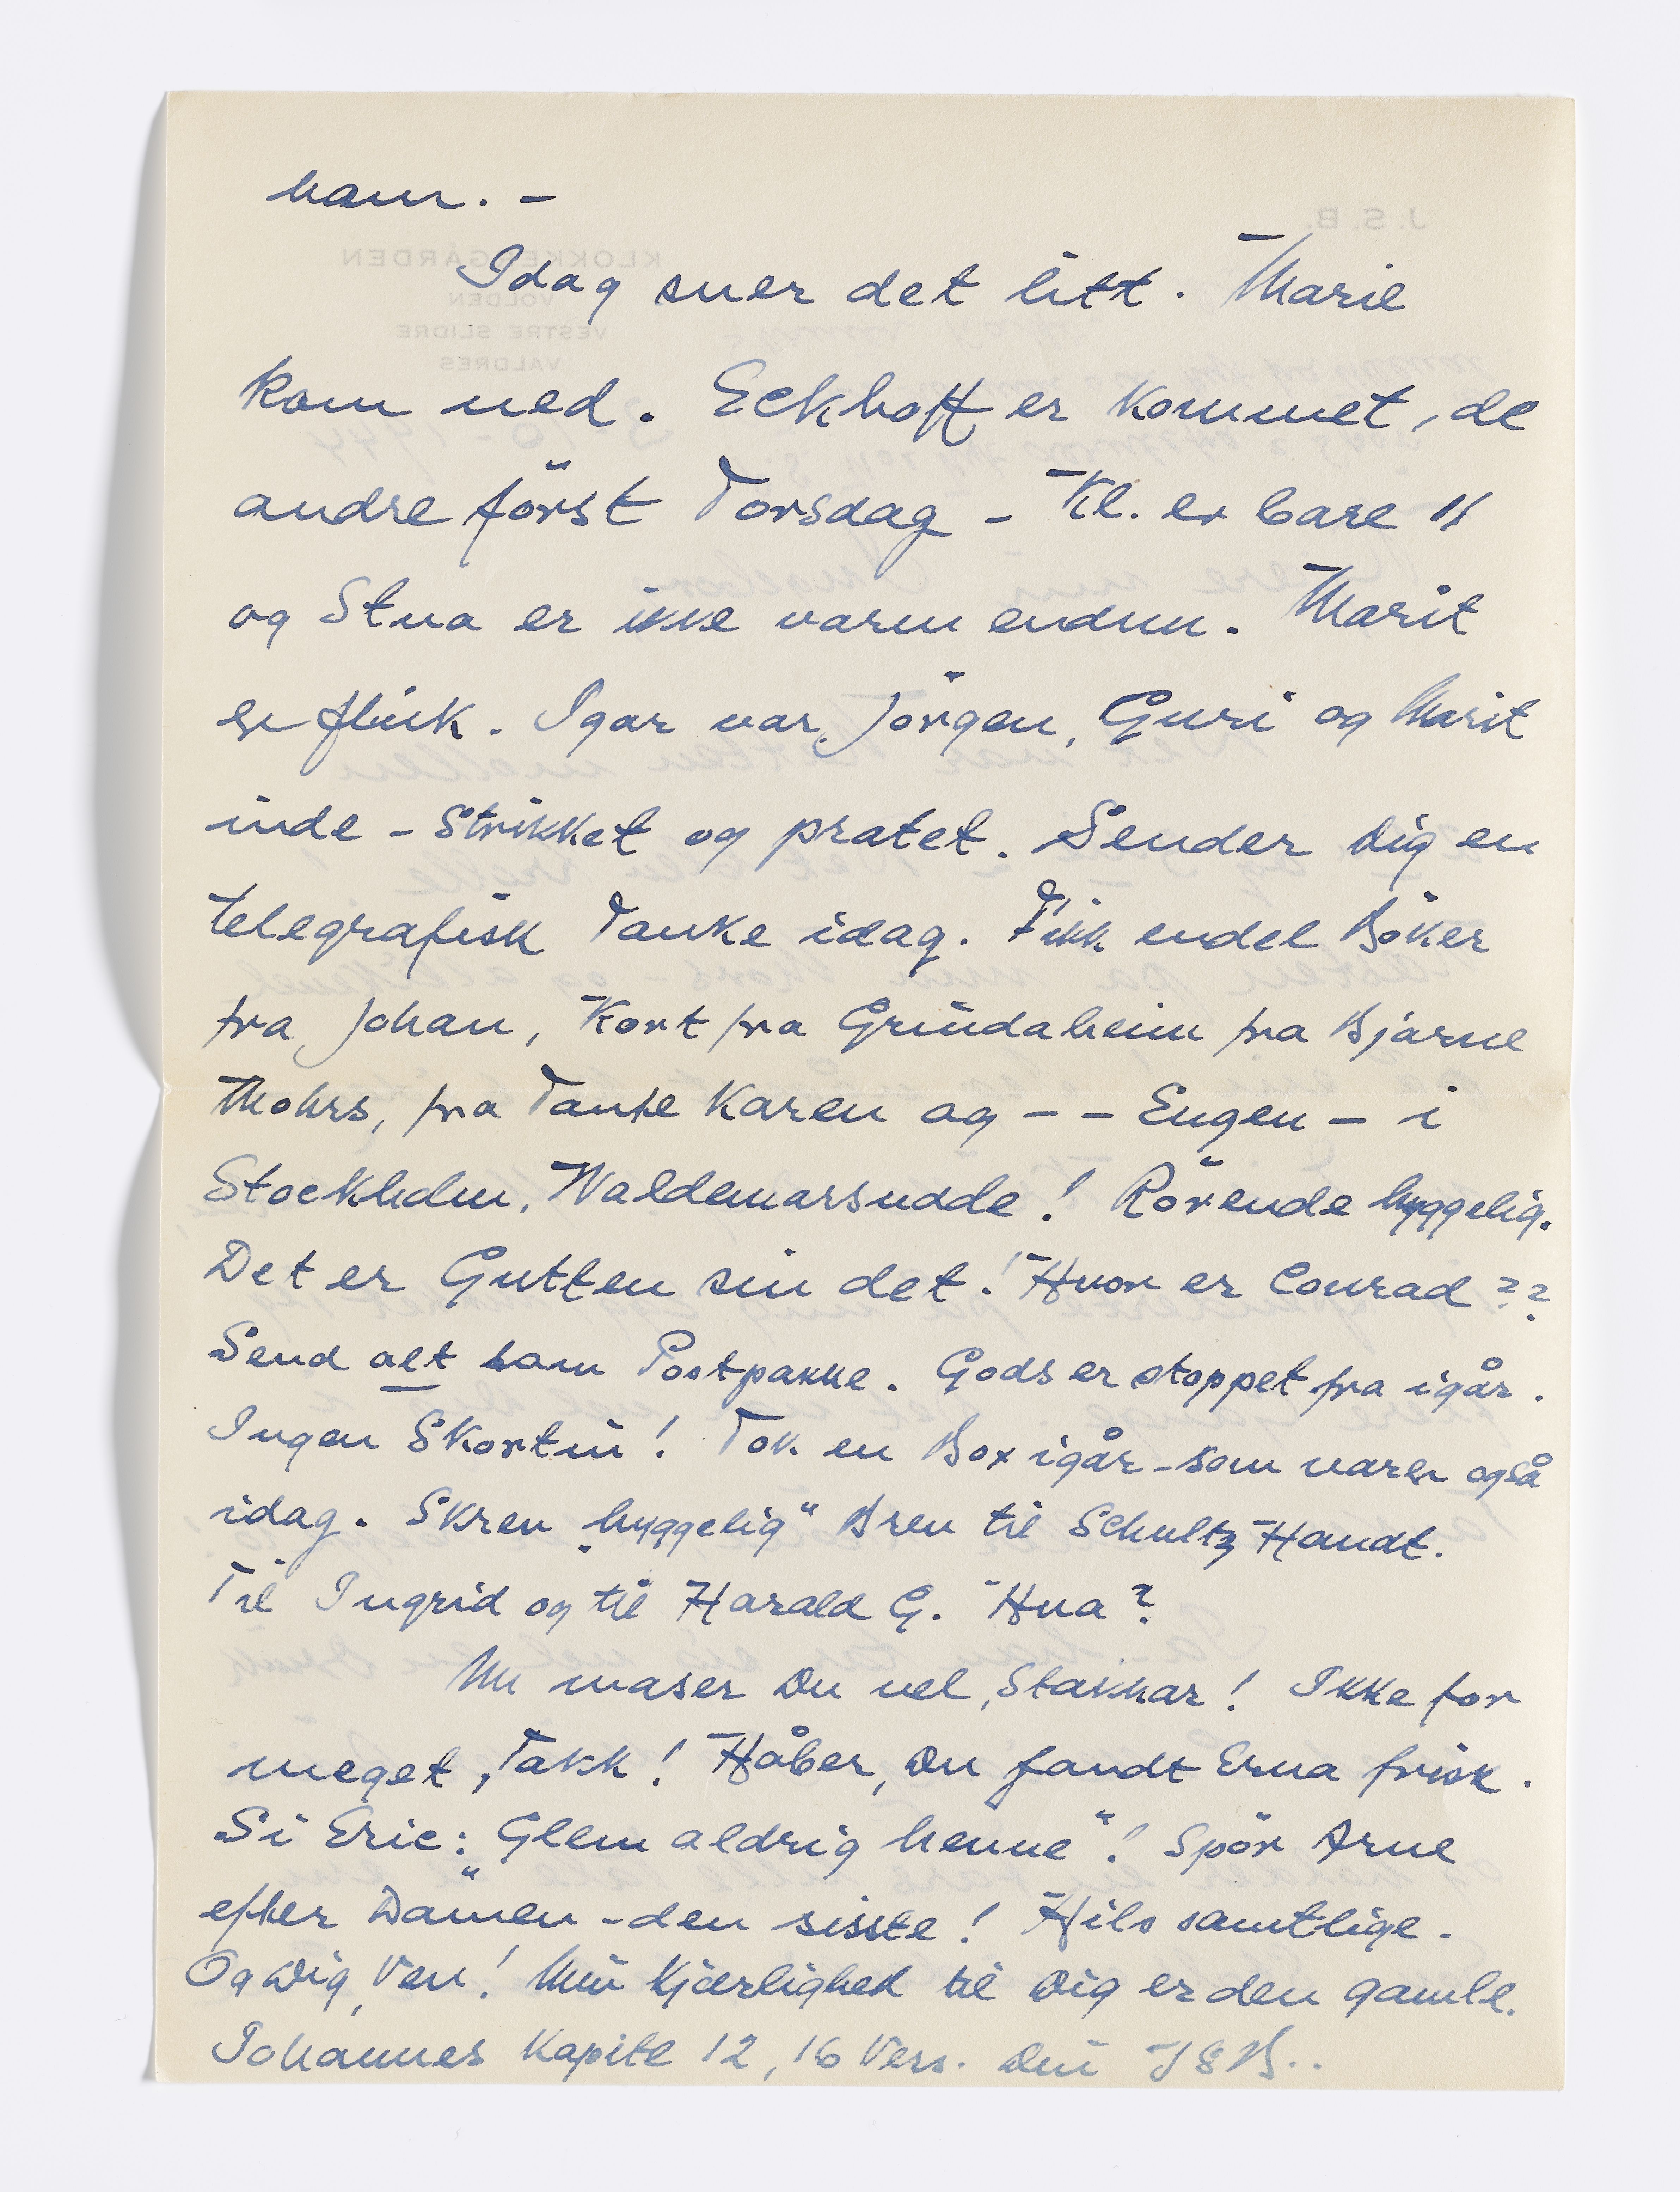 ham. -
Idag sner det litt. Marie
kom ned. Eckhoff er kommet, de
andre först Torsdag - Kl. er bare 11
og Stua er ikke varm endnu. Marit
er flink. Igar var Jörgen, Guri og Marit
inde - Strikket og pratet. Sender Dig en
telegrafisk Tanke idag. Fikk endel Böker
fra Johan, Kort fra Grindaheim fra Bjarne
Mohrs, fra Tante Karen og - - Eugen - i
Stockholm, Waldemarsudde! Rörende hyggelig.
Det er Gutten sin det! Hvor er Conrad??
Send alt som Postpakke. Gods er stoppet fra igår.
Ingen Skortin! Tok en Box igår - som varer også
idag. Skrev „hyggelig" Brev til Schultz Handt.
Til Ingrid og til Harald G. Hva?
Nu maser Du vel, Stakkar! Ikke for
meget, Takk! Håber, Du fandt Erna frisk.
Si Eric: „Glem aldrig henne"! Spör Arne
efter Damen - den sisste! Hils samtlige.
Og Dig, Ven! Min Kjærlighed til Dig er den gamle.
Johannes Kapitl 12, 16 Vers. Din JSB..
J. S. B.
KLOKKERGÅRDEN
VOLDEN
VESTRE SLIDRE
VALDRES